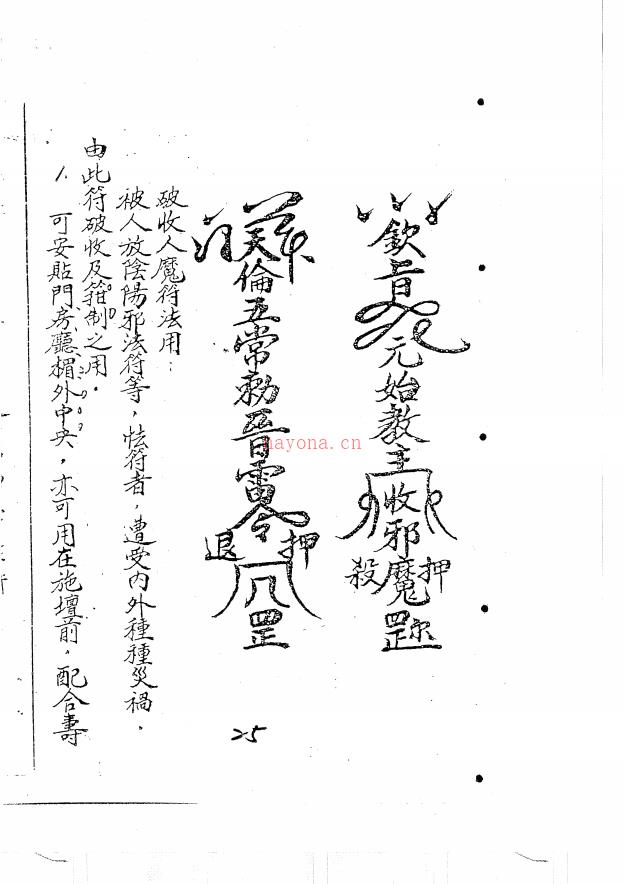 欽旨元始教主收邪魔罡
押
殺
天倫五常勅晉雷令
押
退
罡
破收人魔符法用：
被人放陰陽邪法符等，怯符者，遭受内外種種災禍，
由此符破收及箝制之用。
1. 可安貼門房廳楣外中央，亦可用在施壇前，配合壽
25
nayona.cn